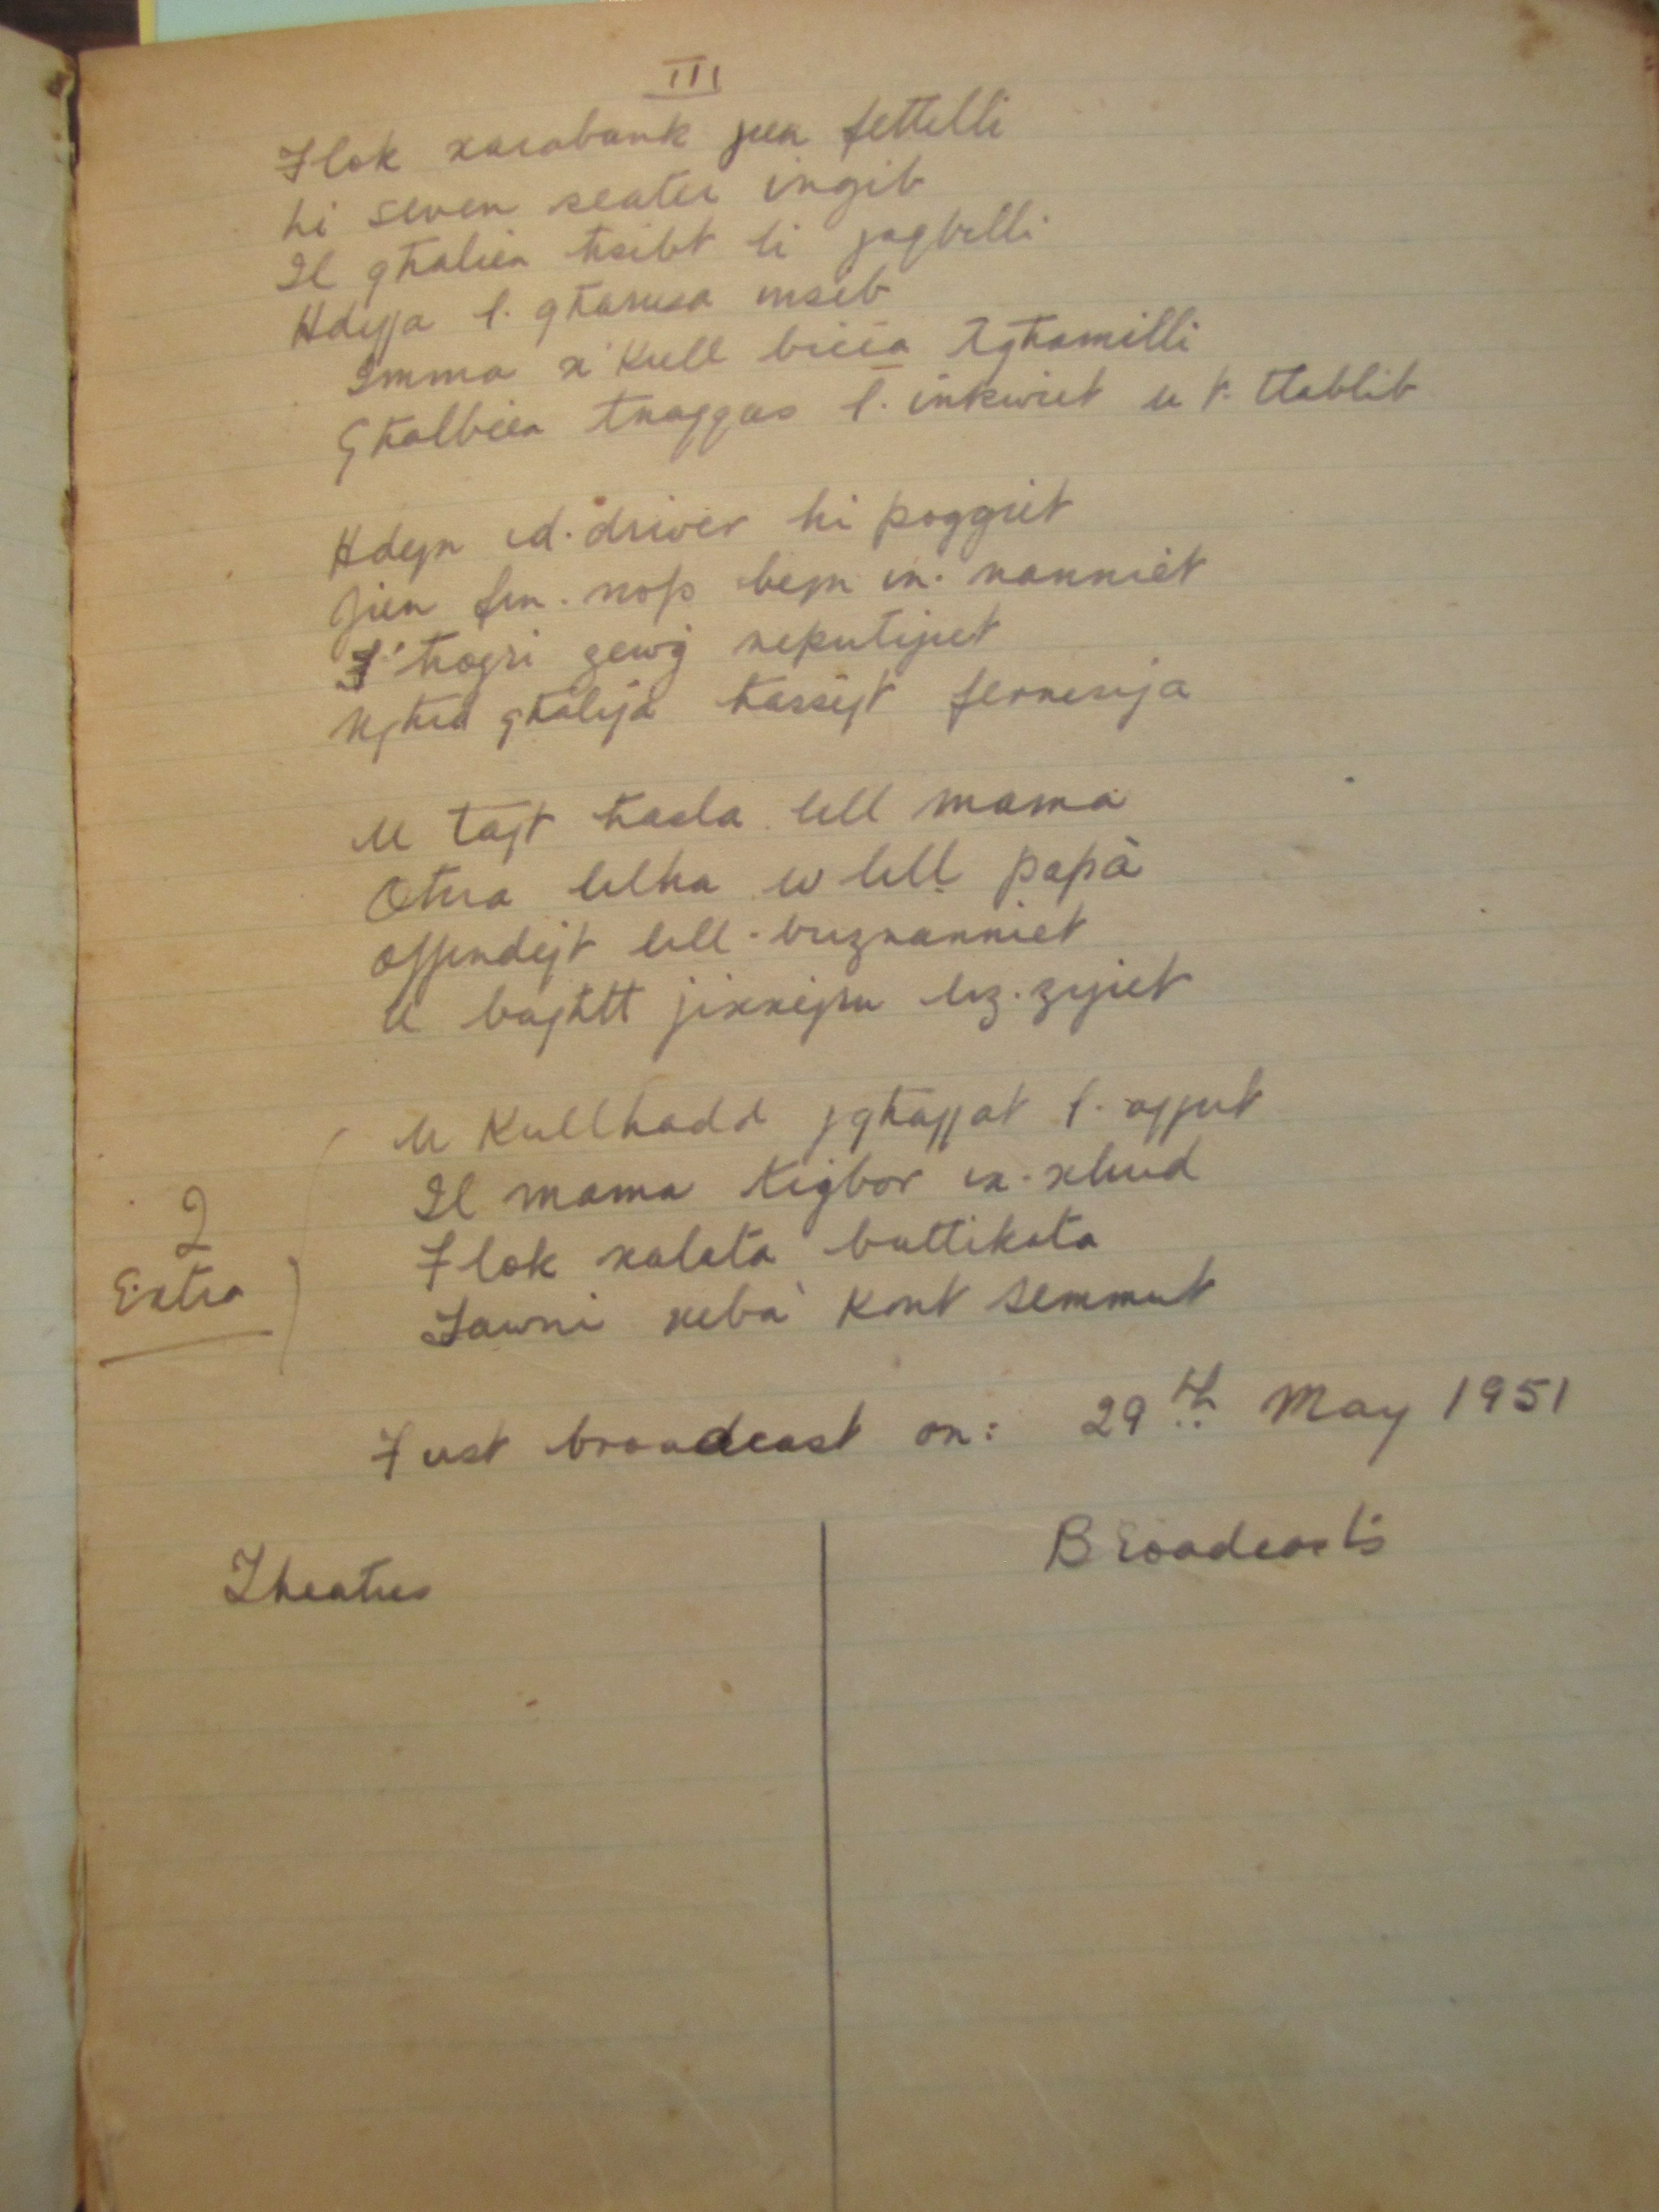 III
Flok xarabank jien fettilli
hi seven seater ingib
Il għalien ħsibt li jaqbilli
Ħdejja l. għarusa insib
Imma x'Kull biċċa tgħamilli
Għalbien tnaqqas l. inkwiet u t. tlablib
Ħdejn id. driver hi poġġiet
Jien fin. nofs bejn in. nanniet
F'ħoġri żewġ neputijiet
Ngħid għalija ħassejt fernesija
U tajt ħasla lill mama
Oħra lilha w lill papà
Offendejt lill. buznanniet
U bagħtt jixxejru liz. zijiet
U Kullħadd jgħajjat l. ajjut
Il mama tiġbor ix. xliud
Flok xalata battikata
Tawni xeba' Kont semmut
2
Extra
First broadcast on: 29th May 1951
Theatres
Broadcasts